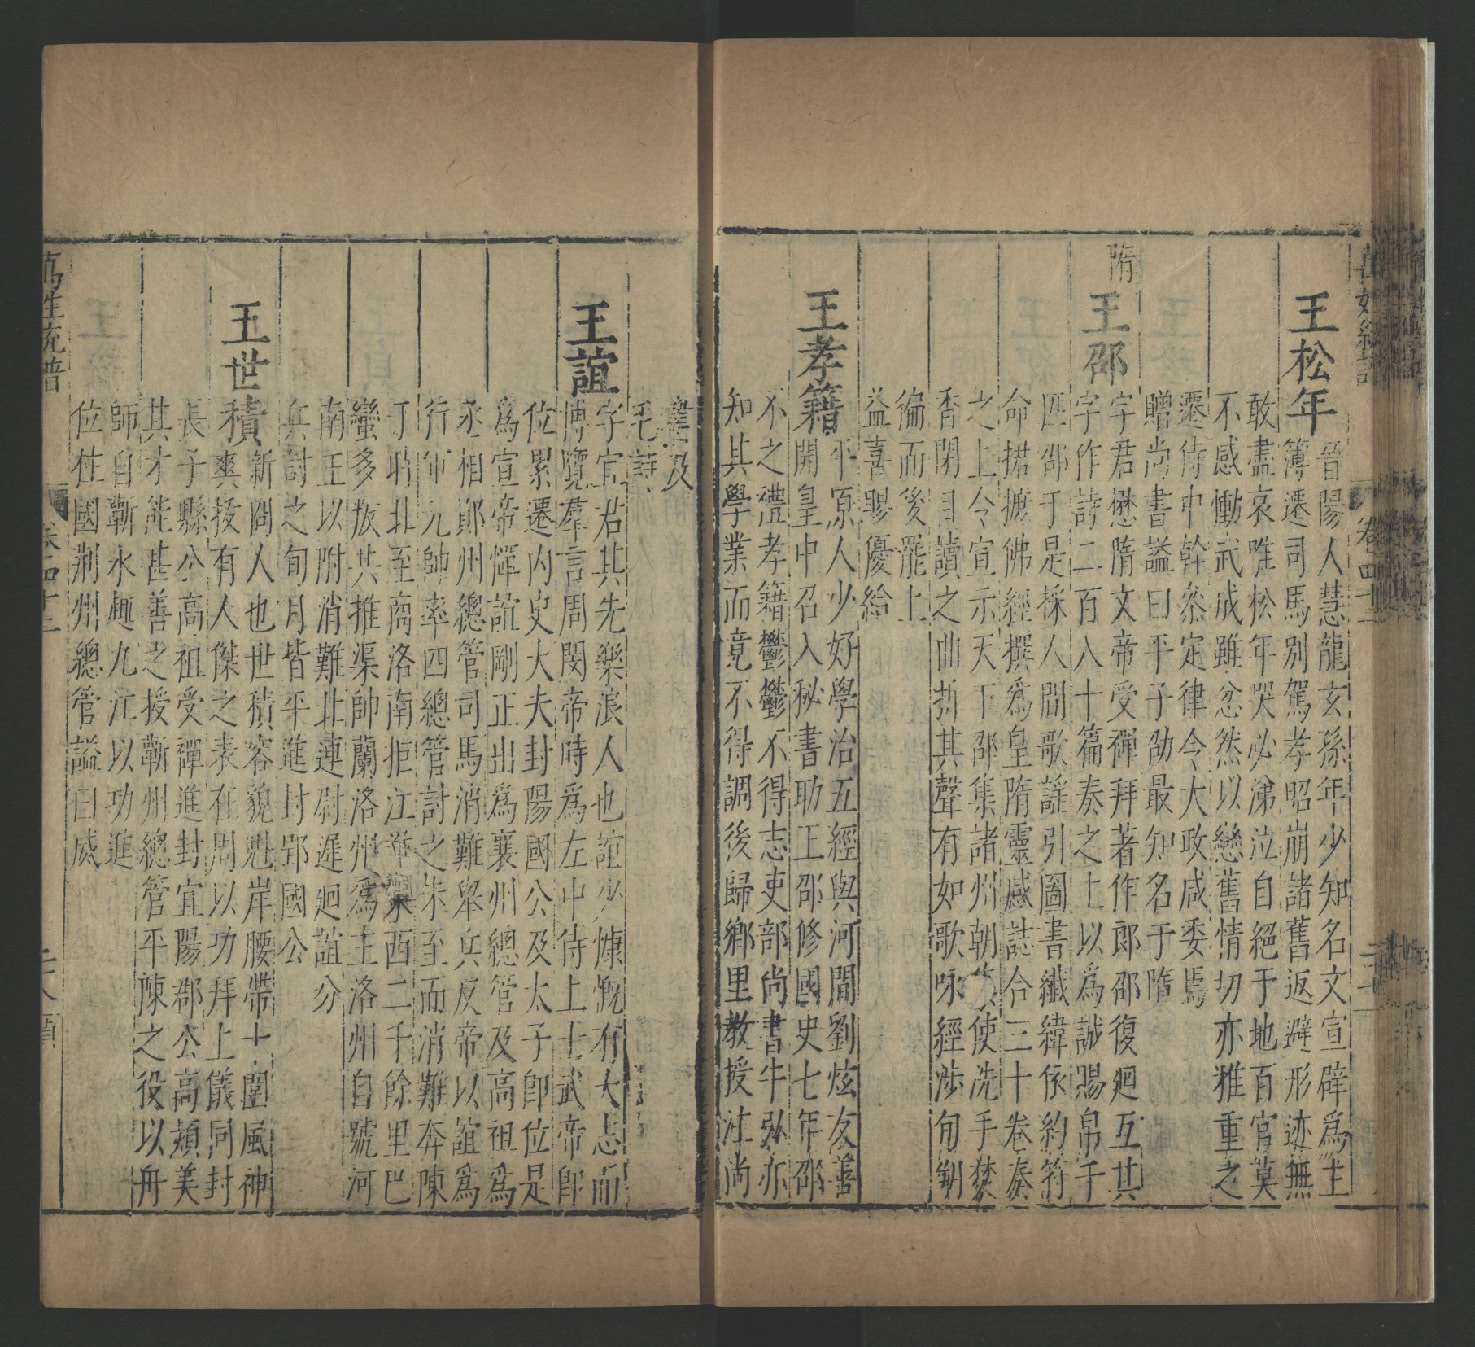 王松年
晉陽人慧龍玄孫年少知名文宣辟爲主
簿遷司馬別駕孝昭崩諸舊返避形迹無
敢盡哀唯松年哭必涕泣自絕于地百官莫
不感慟武成雖忿然以戀舊情切亦雅重之
遷侍中幹叅定律令大政咸委焉
贈尚書謚曰平子劭最知名于隋
隋
王邵
字君懋隋文帝受禪拜著作郎邵復廻互其
字作詩二百八十篇奏之上以爲誠賜帛千
匹邵于是採人間歌謠引圖書纖緯依約符
命捃摭佛經撰爲皇隋靈感誌合三十卷奏
之上令宣示天下邵集諸州朝使洗手焚
香閉目讀之曲折其聲有如歌咏經涉旬朔
徧而後罷上
益喜賜優給
王孝籍
平原人少好學治五經與河間劉炫友善
開皇中召入秘書助王邵修國史七年邵
不之禮孝籍鬱鬱不得志吏部尚書牛弘亦
知其學業而竟不得調後歸鄉里教授注尚
書及
毛詩
王誼
字宜君其先樂浪人也誼少慷慨有大志而
博覽羣言周閔帝時爲左中侍上士武帝卽
位累遷內史大夫封陽國公及太子卽位是
爲宣帝憚誼剛正出爲襄州總管及高祖爲
丞相鄖州總管司馬消難舉兵反帝以誼爲
行軍元帥率四總管討之未至而消難奔陳
于時北至商洛南拒江淮東西二千餘里巴
蠻多叛共推渠帥蘭洛州爲主洛州自號河
南王以附消難北連尉遲廻誼分
兵討之旬月皆平進封郢國公
王世積
新圀人也世積容貌魁岸腰帶十圍風神
爽拔有人傑之表在周以功拜上儀同封
長子縣公高祖受禪進封宜陽郡公高熲美
其才能甚善之授蘄州總管平陳之役以舟
師自蘄水趣九江以功進
位柱國荊州總管謚曰威
萬姓統譜
卷四十二